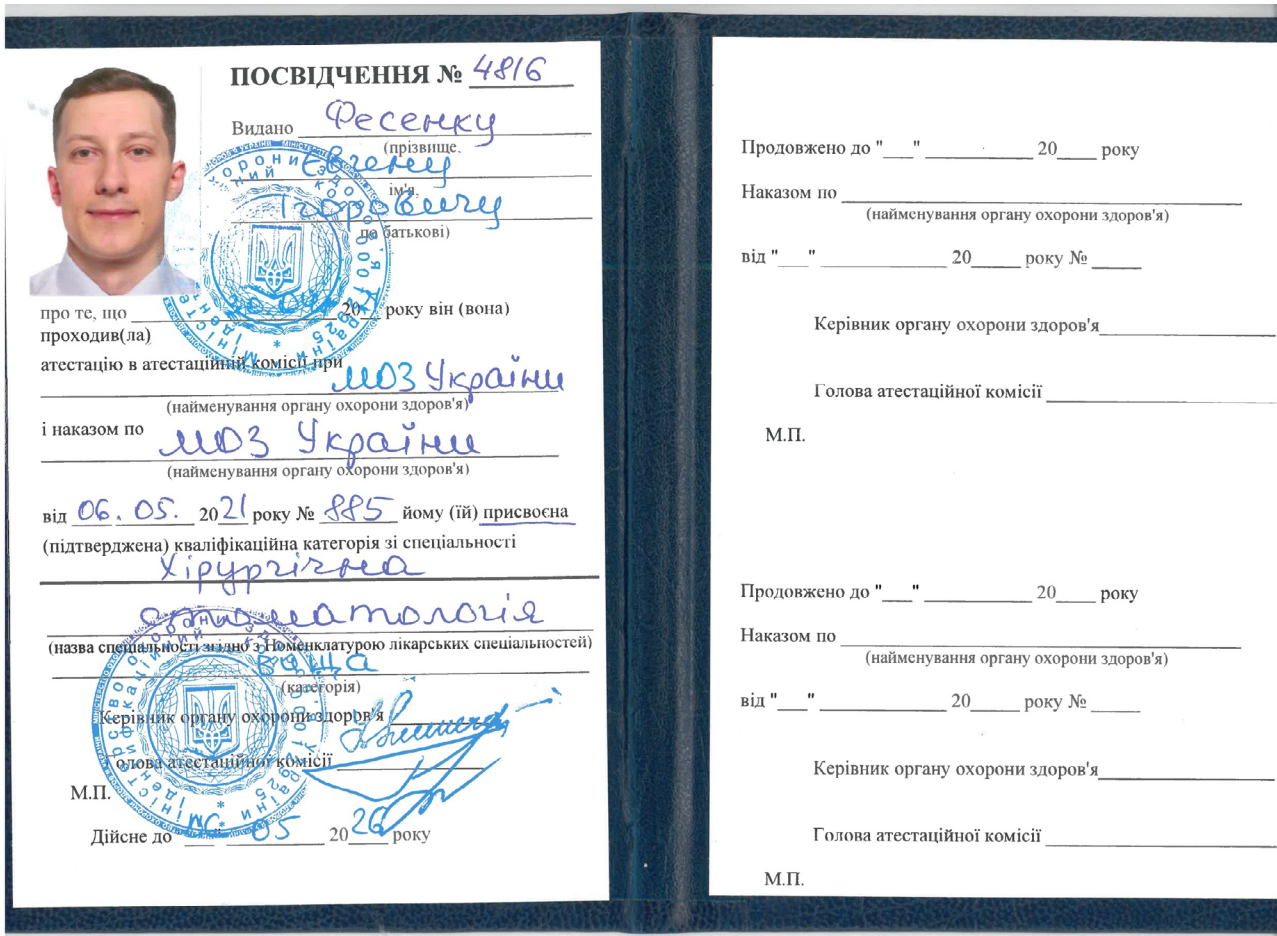 ПОСВІДЧЕННЯ № 4816
Видано Фесенку
(прізвище,
Євгену
ім'я,
Ігоровичу
по батькові)
про те, що 20 року він (вона)
проходив(ла)
атестацію в атестаційній комісії при
МОЗ України
(найменування органу охорони здоров'я)
і наказом по МОЗ України
(найменування органу охорони здоров'я)
від 06. 05. 2021 року № 885 йому (їй) присвоєна
(підтверджена) кваліфікаційна категорія зі спеціальності
Хірургічна
стоматологія
(назва спеціальності згідно з Номенклатурою лікарських спеціальностей)
вища
(категорія)
Керівник органу охорони здоров'я
Голова атестаційної комісії
М.П.
Дійсне до 05 2026 року
Продовжено до "___" ____________ 20____ року
Наказом по
(найменування органу охорони здоров'я)
від "___" ____________ 20_____ року № _____
Керівник органу охорони здоров'я
Голова атестаційної комісії
М.П.
Продовжено до "___" ____________ 20____ року
Наказом по
(найменування органу охорони здоров'я)
від "___" ____________ 20_____ року № _____
Керівник органу охорони здоров'я
Голова атестаційної комісії
М.П.